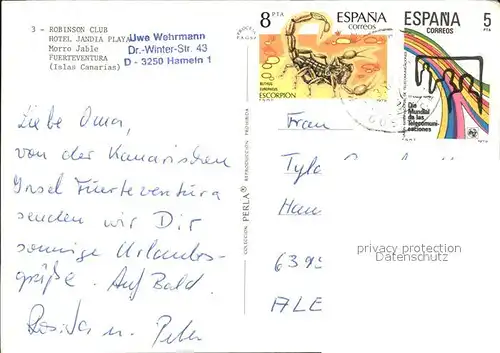 3 - ROBINSON CLUB
HOTEL JANDIA PLAYA
Morro Jable
FUERTEVENTURA
(Islas Canarias)
Uwe Wehrmann
Dr.-Winter-Str. 43
D - 3250 Hameln 1
8 PTA ESPAÑA
CORREOS
ESCORPION
ESPAÑA 5 PTA
CORREOS
Dia
Mundial
de las
Telecomuni
caciones
Liebe Oma,
von der Kanarischen
Insel Fuerteventura
senden wir Dir
sonnige Urlaubs-
grüße. Auf Bald.
Rosita u. Peter
COLECCION PERLA REPRODUCCION PROHIBIDA
Frau
Han
639
ALE
privacy protection
Datenschutz